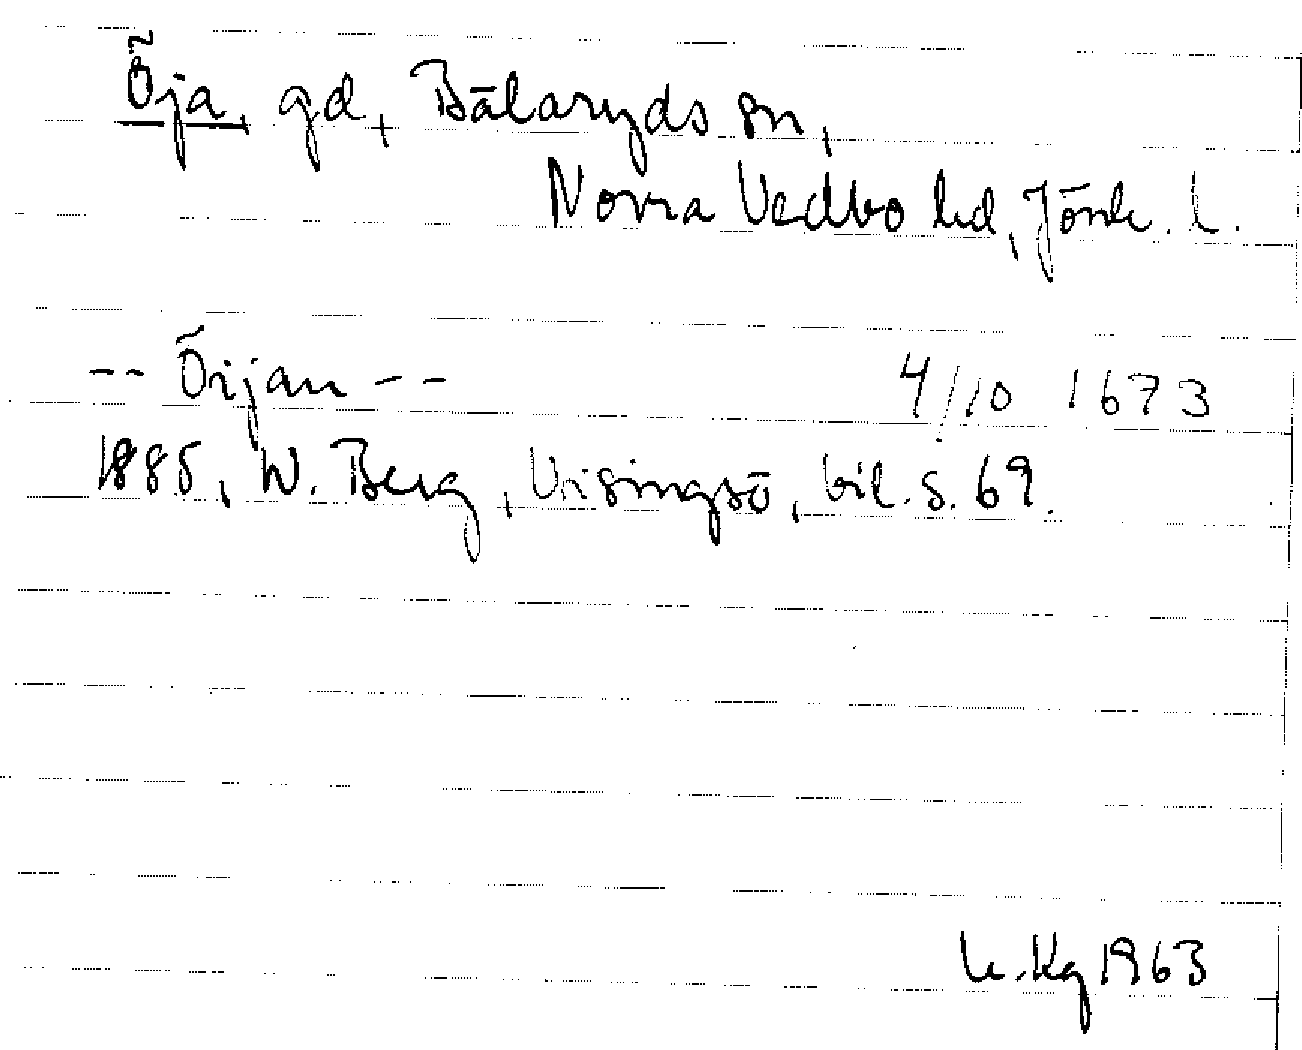 Öja, gd, Bälaryds sn,
Norra Vedbo hd, Jönk. l.
-- Örjan -- 4/10 1673
1885, W. Berg, Visingsö, bil. s. 69.
Kg 1963